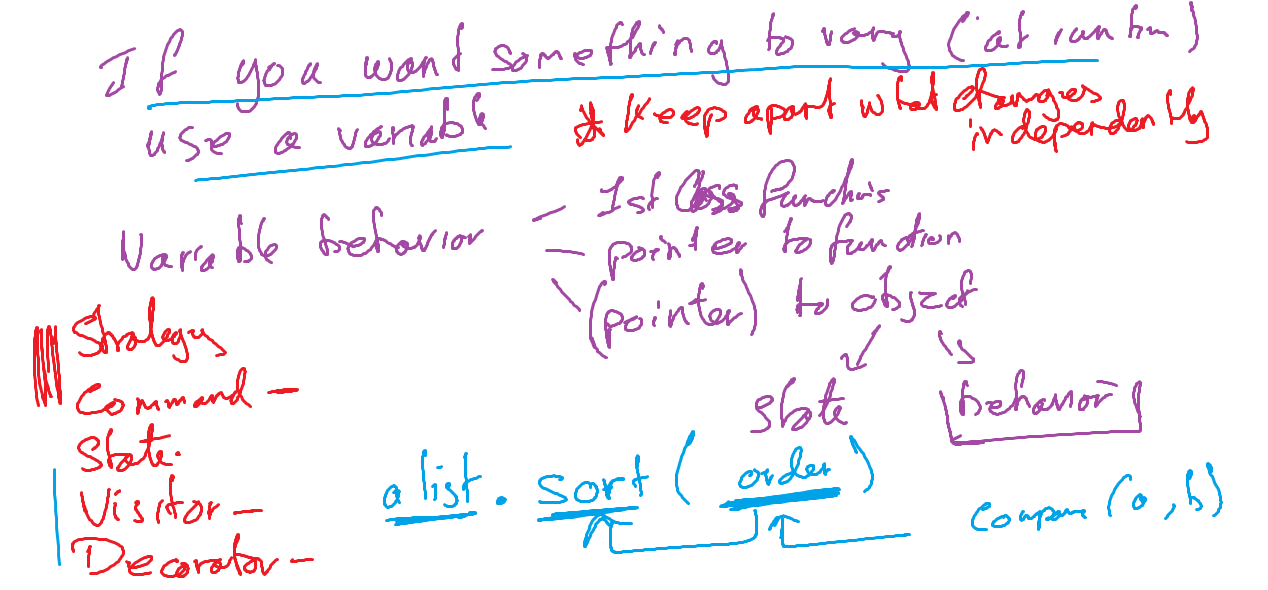 If you want something to vary (at run tim)
use a variable
* Keep apart what changes
independently
Variable behavior
— 1st Class functions
— pointer to function
\ (pointer) to object
state
behavior
Strategy
Command —
State.
Visitor —
Decorator —
a list . sort ( order )
compare (a, b)